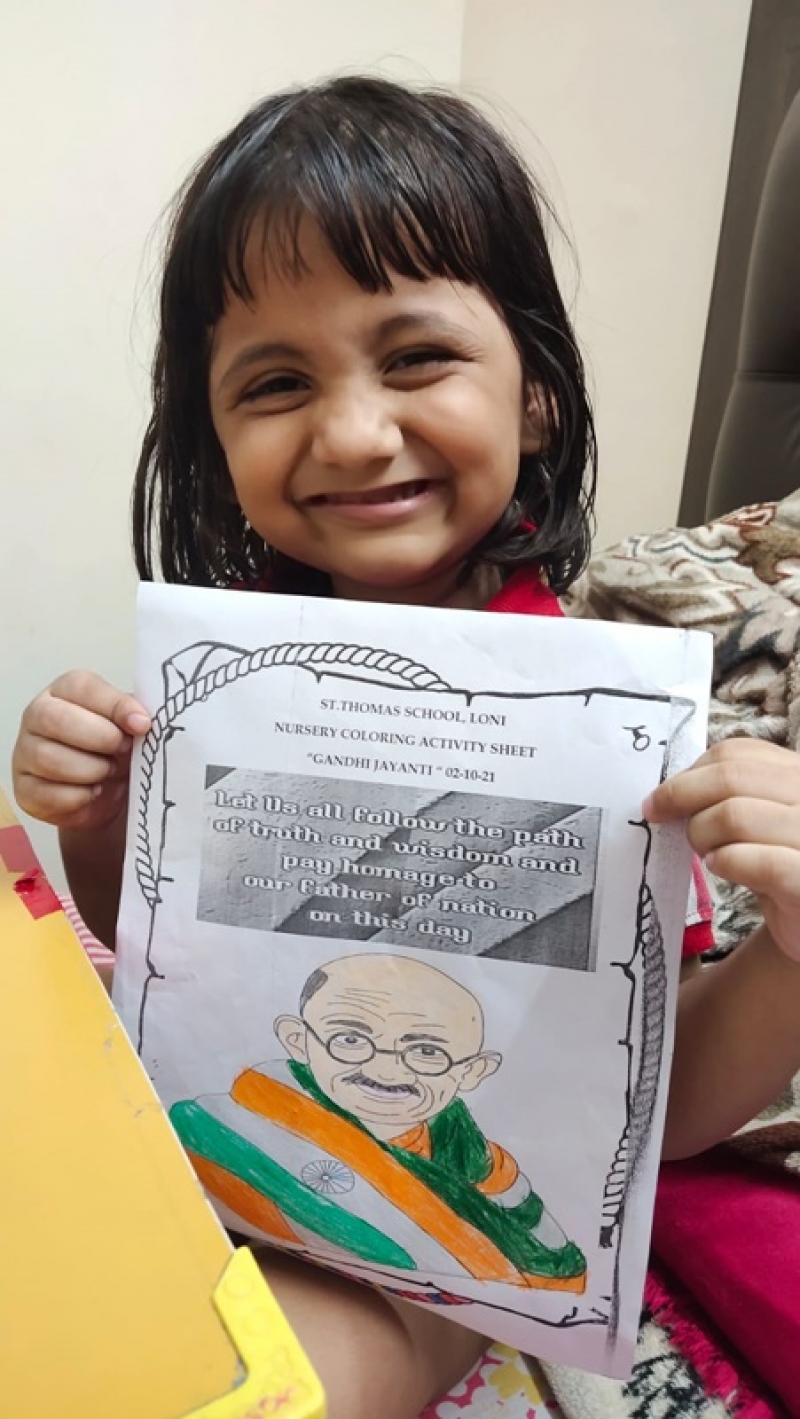 ST.THOMAS SCHOOL, LONI
NURSERY COLORING ACTIVITY SHEET
"GANDHI JAYANTI " 02-10-21
Let Us all follow the path
of truth and wisdom and
pay homage to
our father of nation
on this day